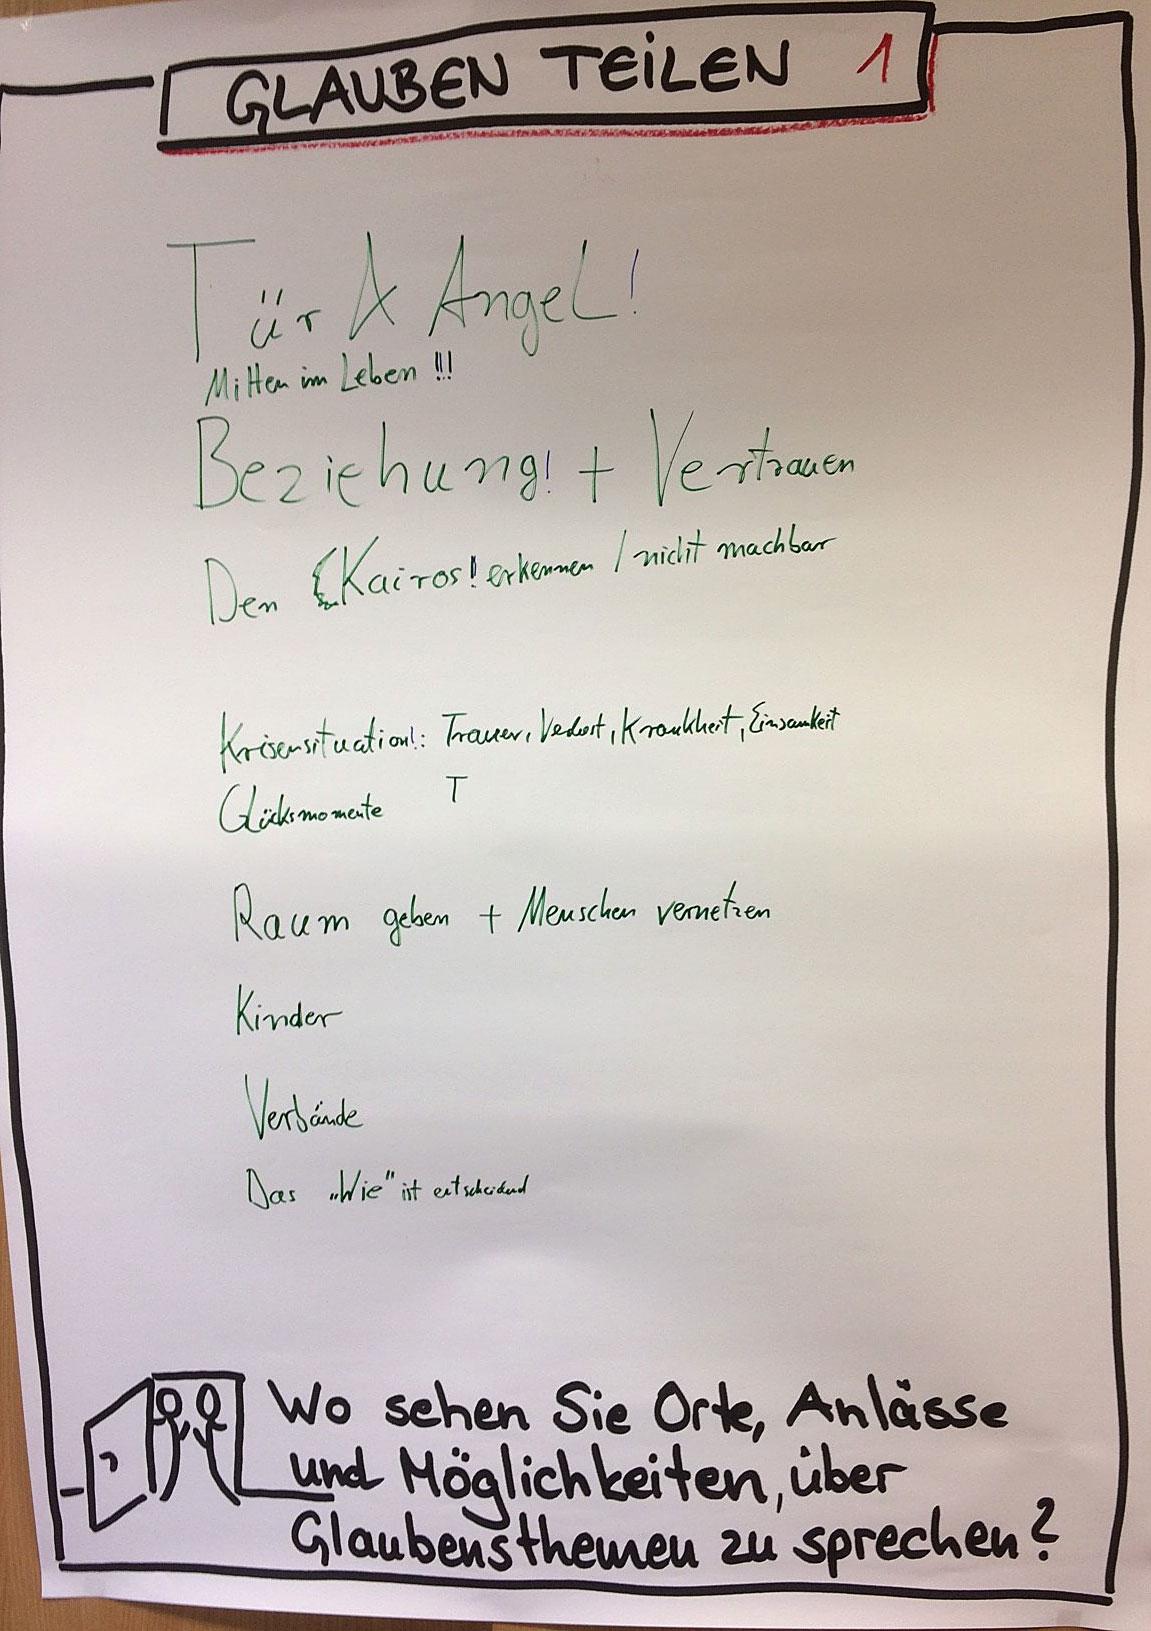 GLAUBEN TEILEN 1
Tür & Angel!
Mitten im Leben !!!
Beziehung! + Vertrauen
Den Kairos! erkennen / nicht machbar
Krisensituation!: Trauer, Verlust, Krankheit, Einsamkeit
T
Glücksmomente
Raum geben + Menschen vernetzen
Kinder
Verbände
Das „Wie" ist entscheidend
Wo sehen Sie Orte, Anlässe
und Möglichkeiten, über
Glaubensthemen zu sprechen?